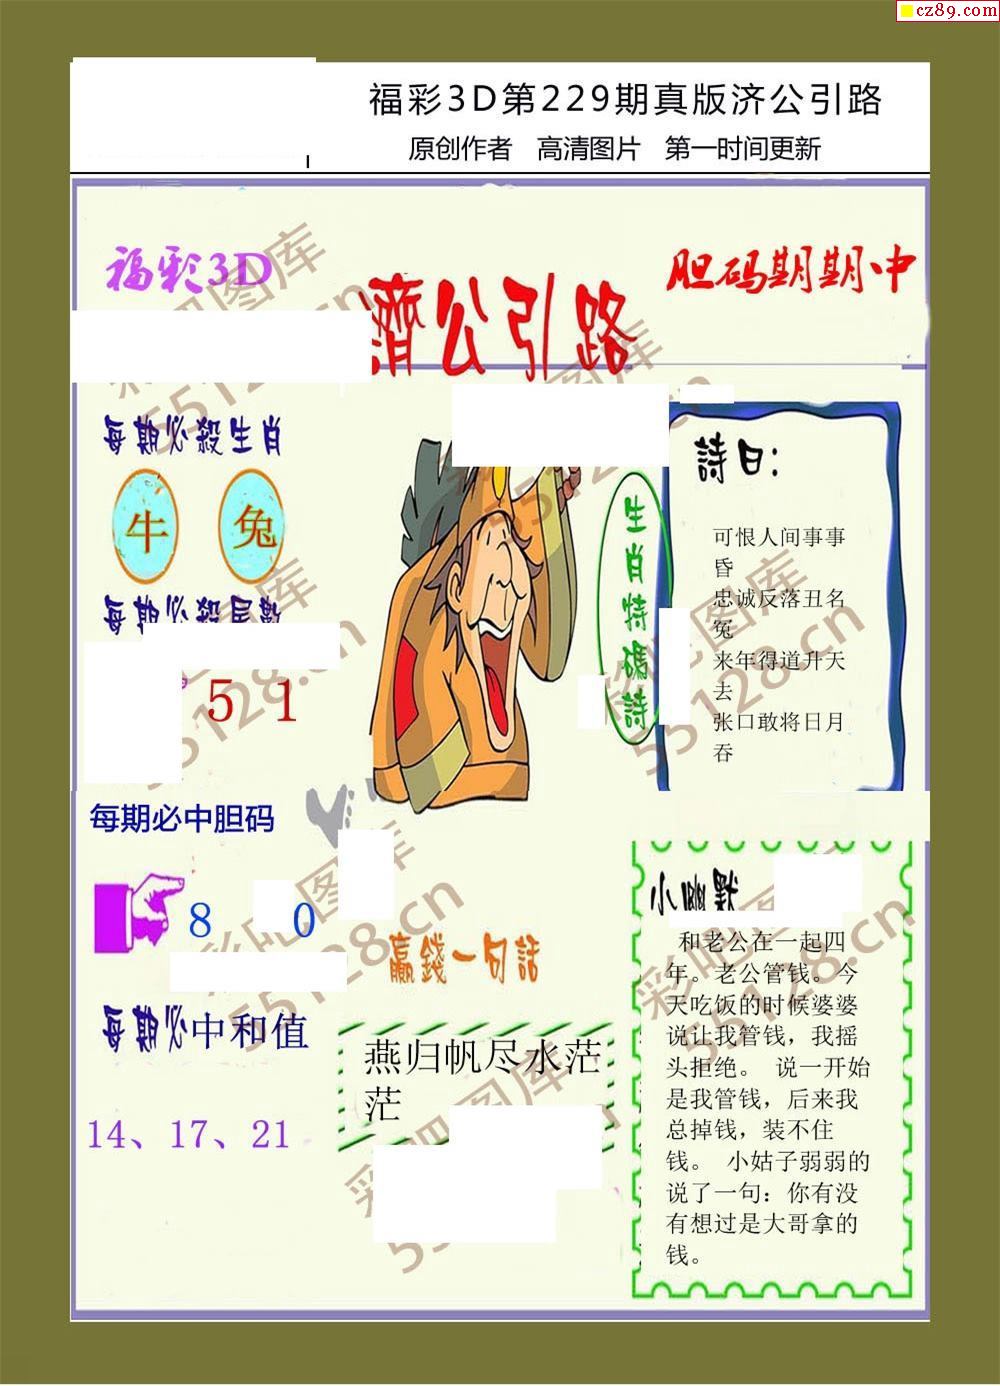 cz89.com
福彩3D第229期真版济公引路
原创作者 高清图片 第一时间更新
福彩3D
濟公引路
胆码期期中
每期必殺生肖
牛 兔
每期必殺尾數
5 1
每期必中胆码
8 0
每期必中和值
14、17、21
生肖特碼詩
詩曰：
可恨人间事事
昏
忠诚反落丑名
冤
来年得道升天
去
张口敢将日月
吞
赢錢一句話
燕归帆尽水茫
茫
小幽默
和老公在一起四
年。老公管钱。今
天吃饭的时候婆婆
说让我管钱，我摇
头拒绝。 说一开始
是我管钱，后来我
总掉钱，装不住
钱。 小姑子弱弱的
说了一句：你有没
有想过是大哥拿的
钱。
彩吧图库
55128.cn